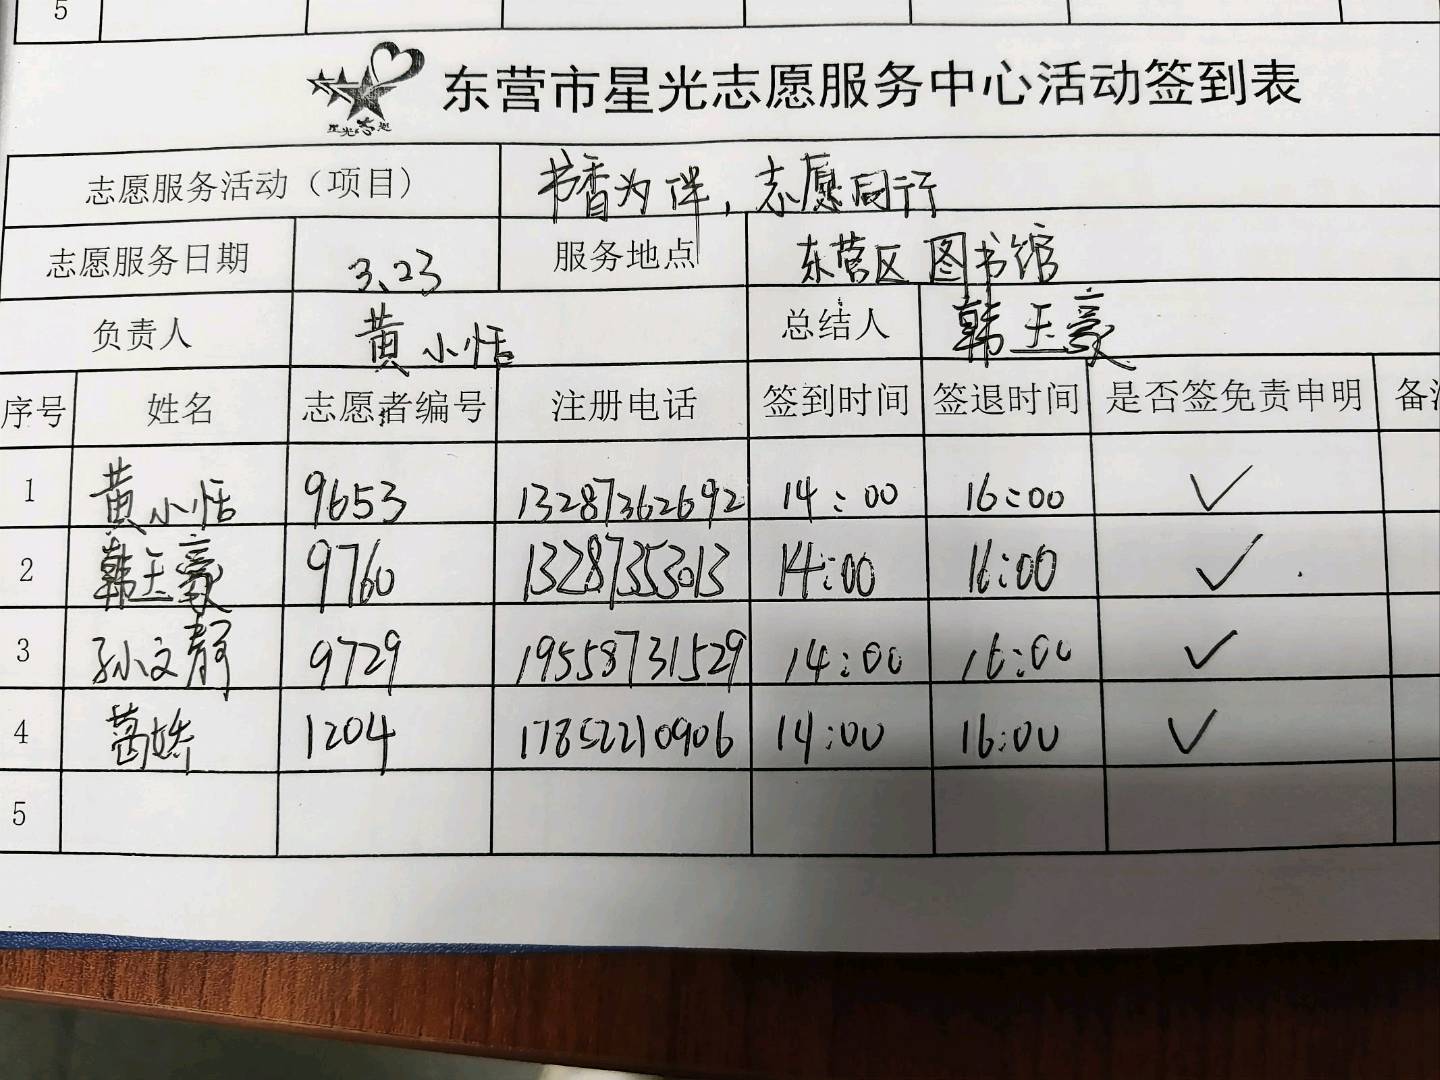 5
星光志愿
东营市星光志愿服务中心活动签到表
志愿服务活动（项目） 书香为伴，志愿同行
志愿服务日期 3.23 服务地点 东营区图书馆
负责人 黄小恬 总结人 韩玉豪
序号 姓名 志愿者编号 注册电话 签到时间 签退时间 是否签免责申明 备
1 黄小恬 9653 13287362692 14:00 16:00 ✓
2 韩玉豪 9760 13287353013 14:00 16:00 ✓
3 孙文静 9729 19558731529 14:00 16:00 ✓
4 葛娇 1204 17852210906 14:00 16:00 ✓
5